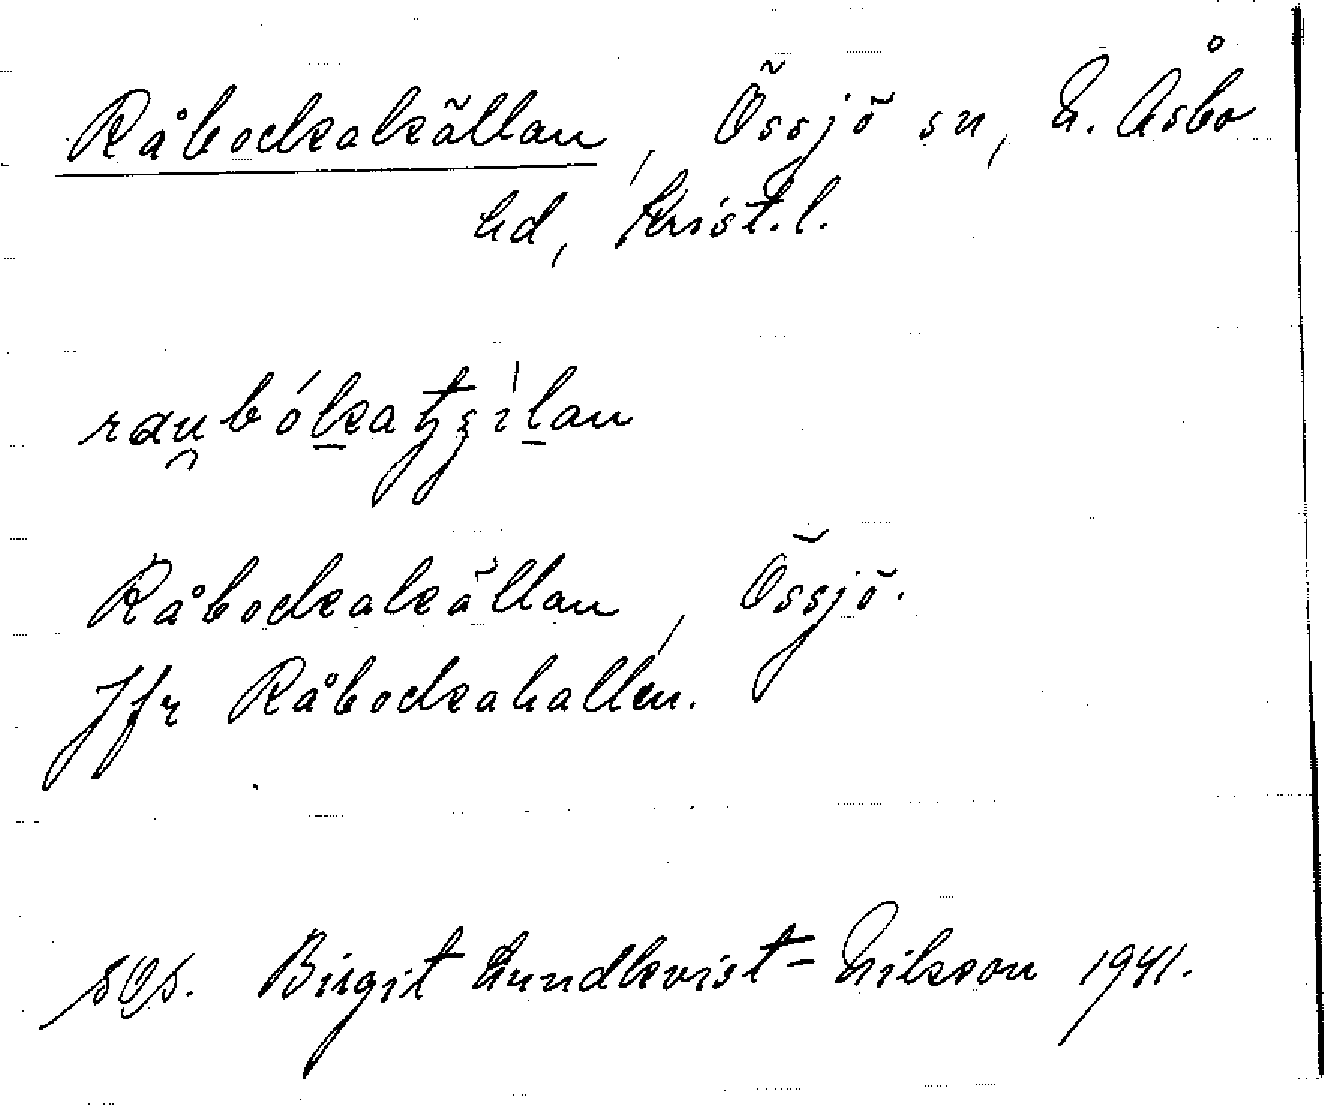 Råbockakällan, Össjö sn, N. Åsbo
hd, Krist. l.
Råbockakällan, Össjö.
Jfr Råbockahallen.
Birgit Lundkvist-Nilsson 1941.